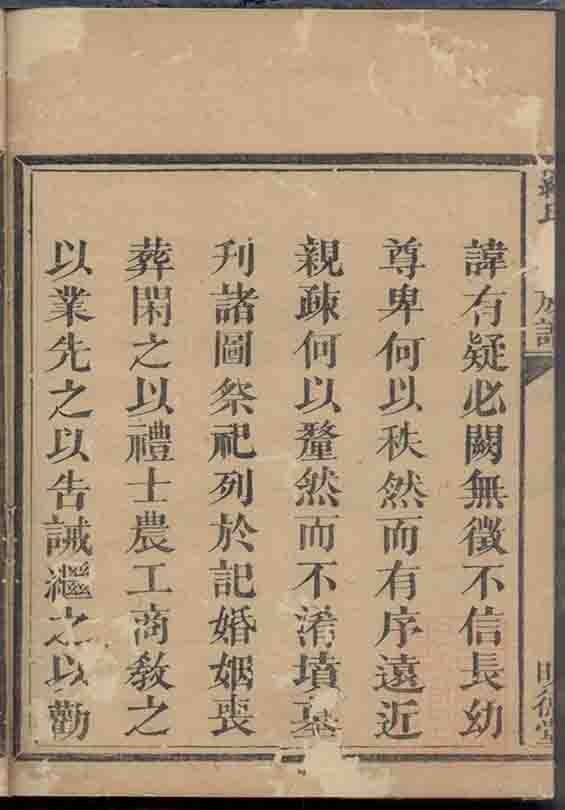 氏
族譜
明德堂
諱有疑必闕無徵不信長幼
尊卑何以秩然而有序遠近
親疎何以釐然而不淆墳墓
刊諸圖祭祀列於記婚姻喪
葬閑之以禮士農工商敎之
以業先之以告誡繼之以勸